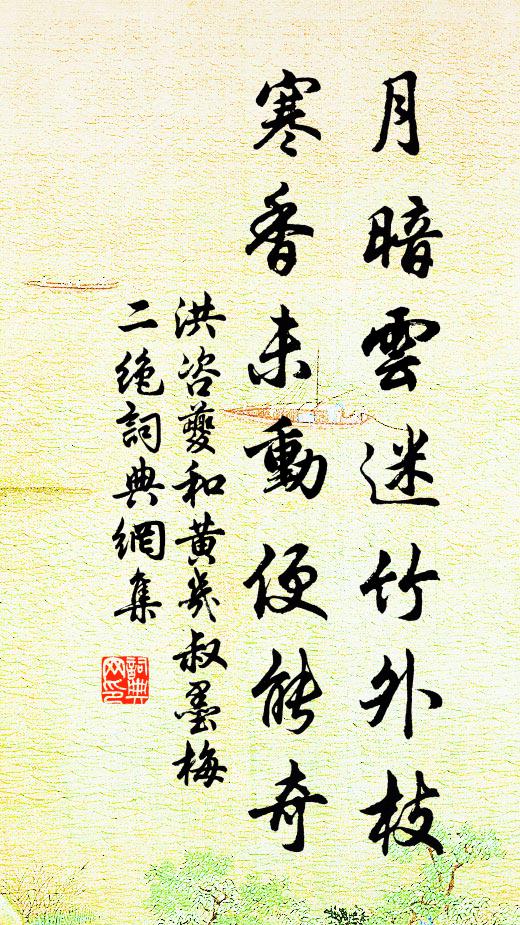 月暗雲迷竹外枝
寒香未動便能奇
洪咨夔和黃幾叔墨梅
二絶詞典網集
詞典网印